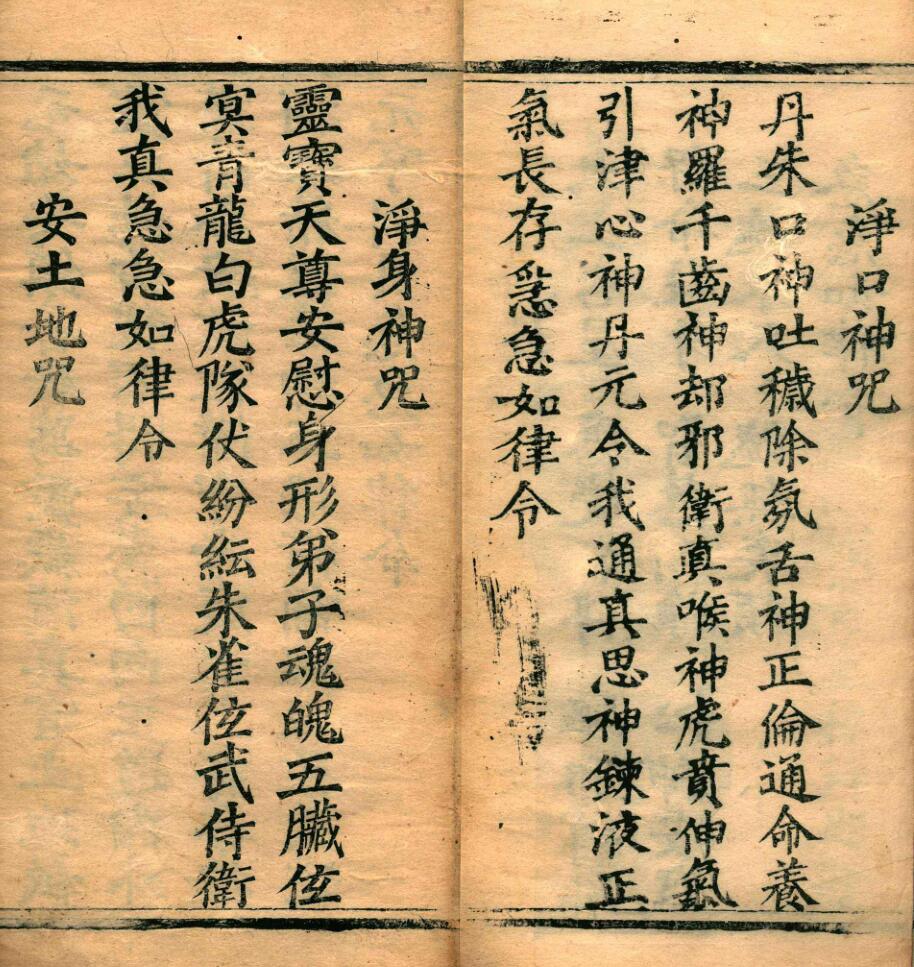 淨口神咒
丹朱口神吐穢除氛舌神正倫通命養
神羅千齒神却邪衛真喉神虎賁伸氣
引津心神丹元令我通真思神鍊液正
氣長存急急如律令
淨身神咒
靈寶天尊安慰身形弟子魂魄五臟位
冥青龍白虎隊伏紛紜朱雀位武侍衛
我真急急如律令
安土地咒